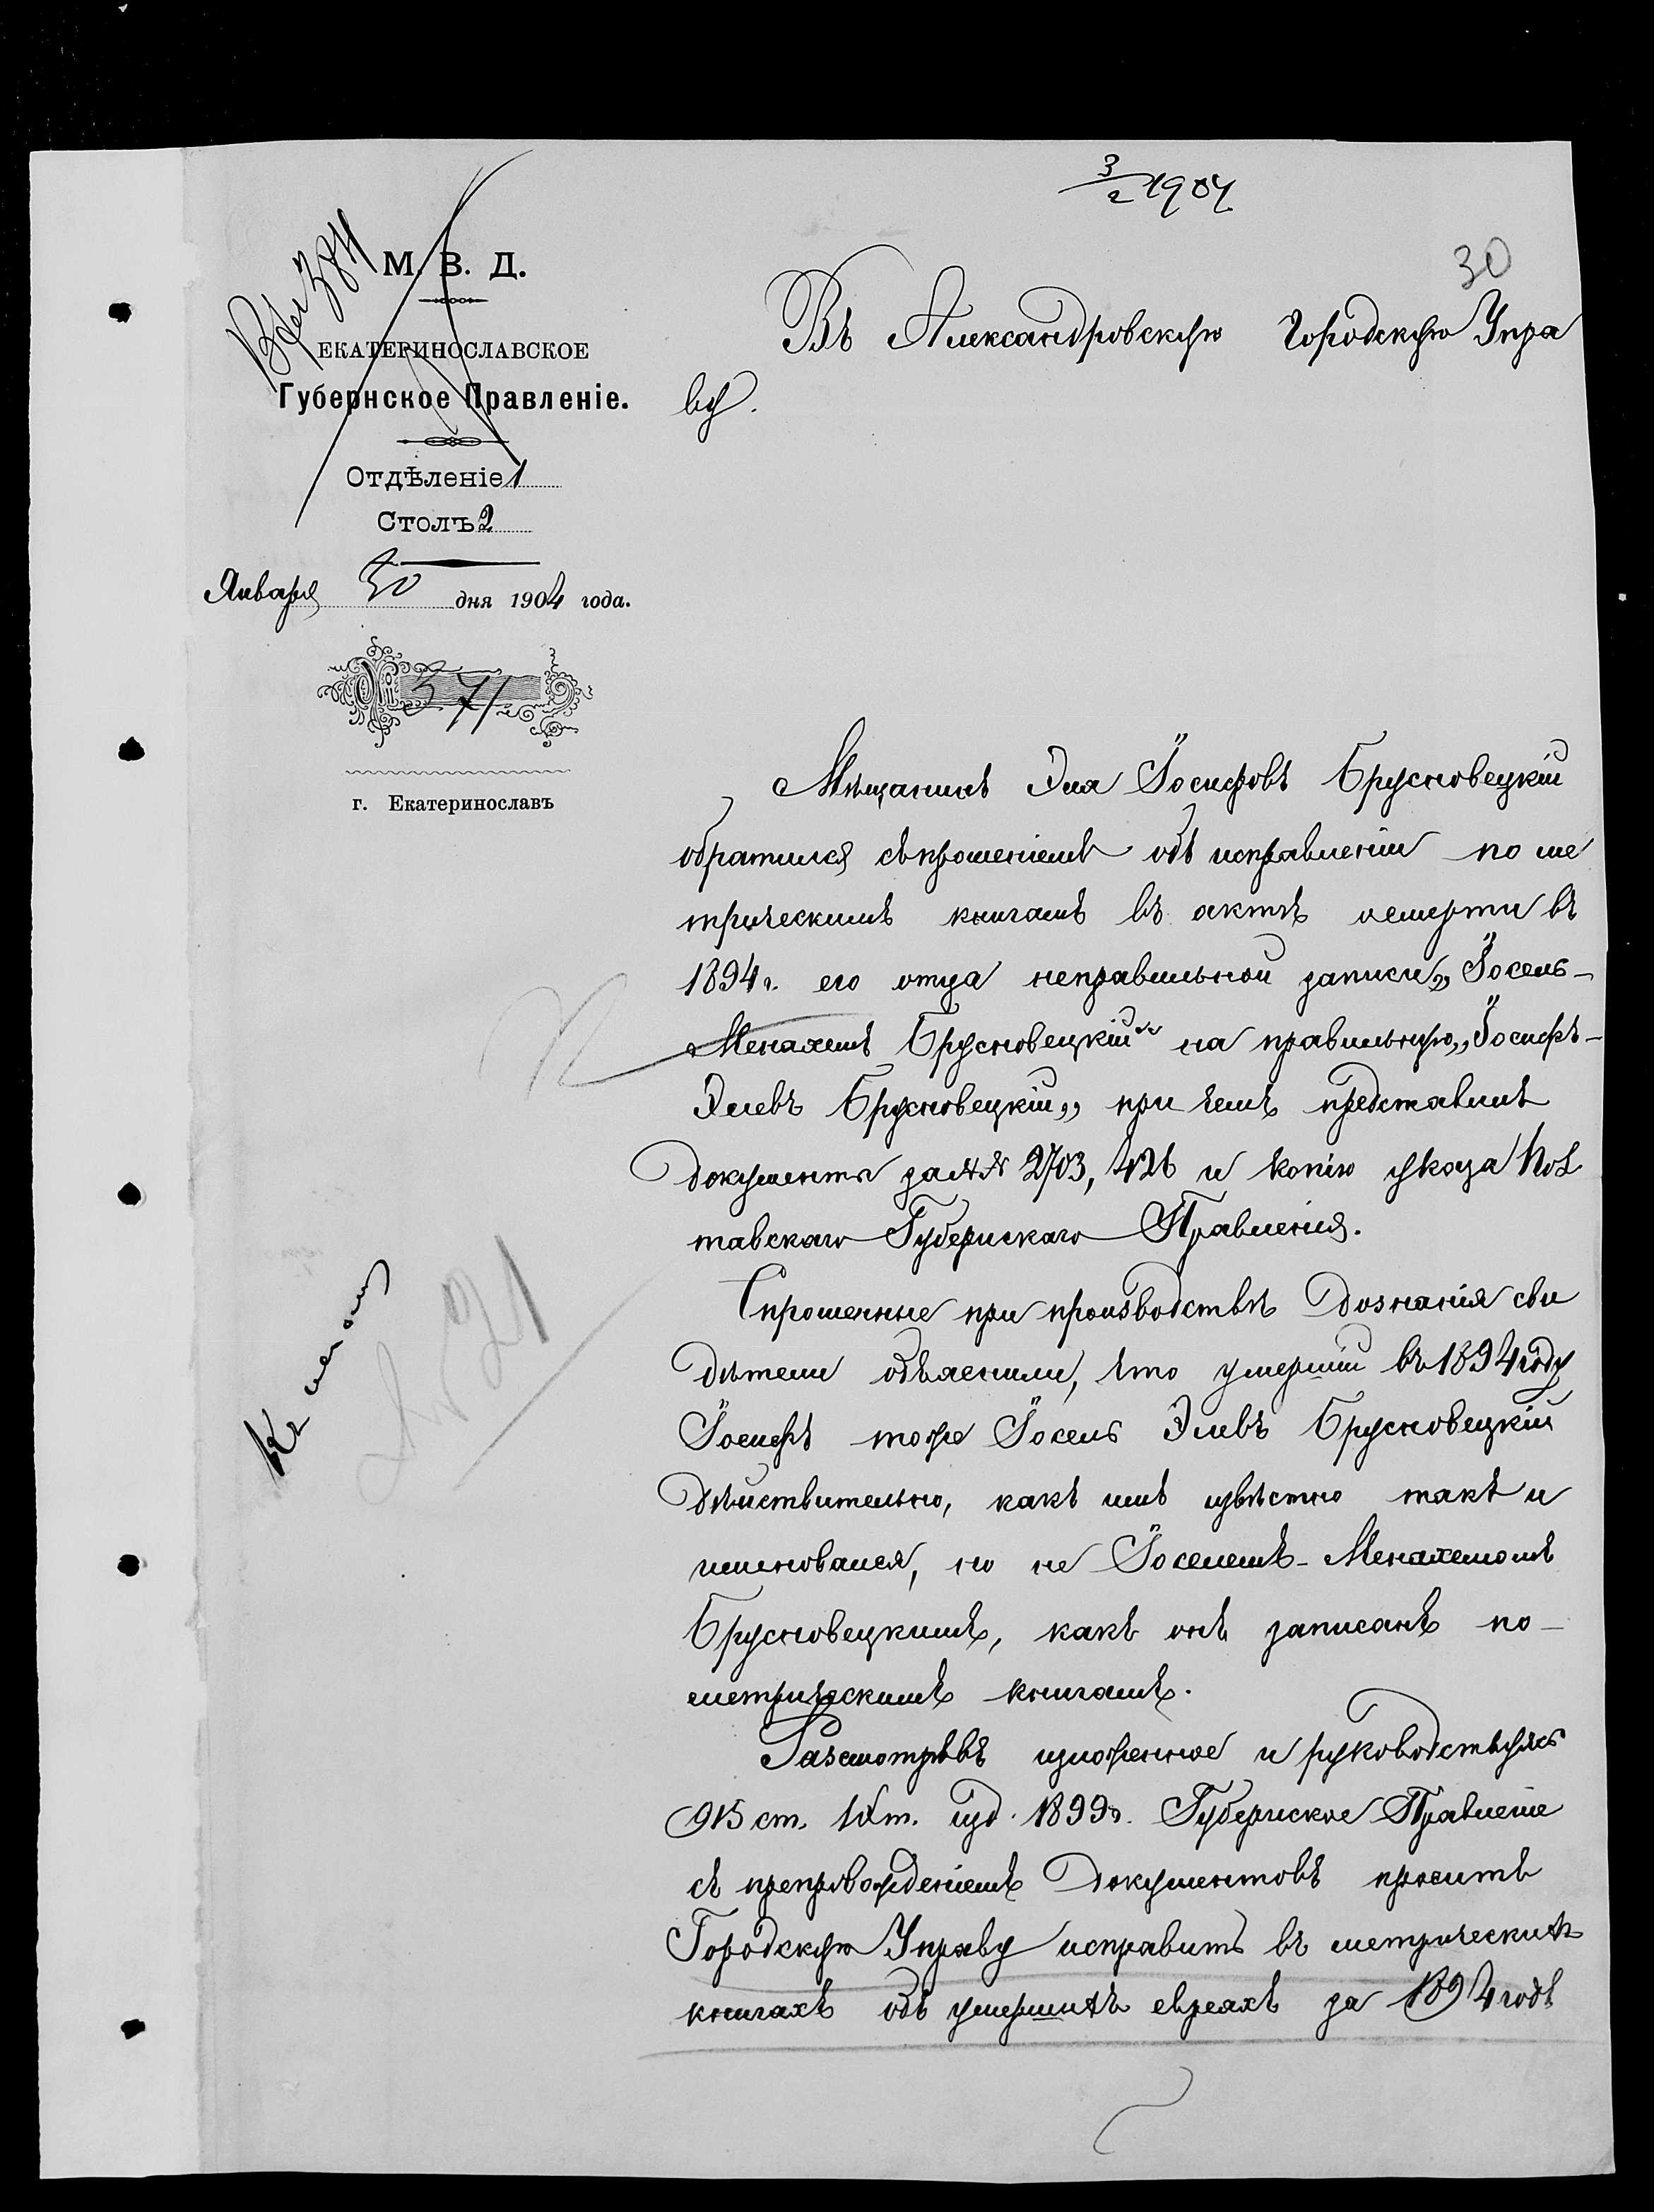 3/2 1904
30
Вх 384
М. В. Д.
ЕКАТЕРИНОСЛАВСКОЕ
Губернское Правленіе.
Отдѣленіе 1
Столъ 2
Января 30 дня 1904 года.
№ 371
г. Екатеринославъ
Въ Александровскую Городскую Упра
ву.
Мѣщанинъ Эля Іосифовъ Брусновецкій
обратился съ прошеніемъ объ исправленіи по ме
трическимъ книгамъ въ актѣ о смерти въ
1894 г. его отца неправильной записи „Іосель-
Менахемъ Брусновецкій“ на правильную „Іосифъ-
Элевъ Брусновецкій„ при чемъ представилъ
документы за №№ 2703, 426 и копію указа Пол
тавскаго Губернскаго Правленія.
Спрошенные при производствѣ дознанія сви
дѣтели объяснили, что умершій въ 1894 году
Іосифъ тоже Іосель Элевъ Брусновецкій
дѣйствительно, какъ имъ извѣстно такъ и
именовался, но не Іоселемъ-Менахемомъ
Брусновецкимъ, какъ онъ записанъ по-
метрическимъ книгамъ.
Разсмотрѣвъ изложенное и руководствуясь
915 ст. IX т. изд. 1899 г. Губернское Правленіе
съ препровожденіемъ документовъ проситъ
Городскую Управу исправить въ метрическихъ
книгахъ объ умершихъ евреяхъ за 1894 годъ
№ 21